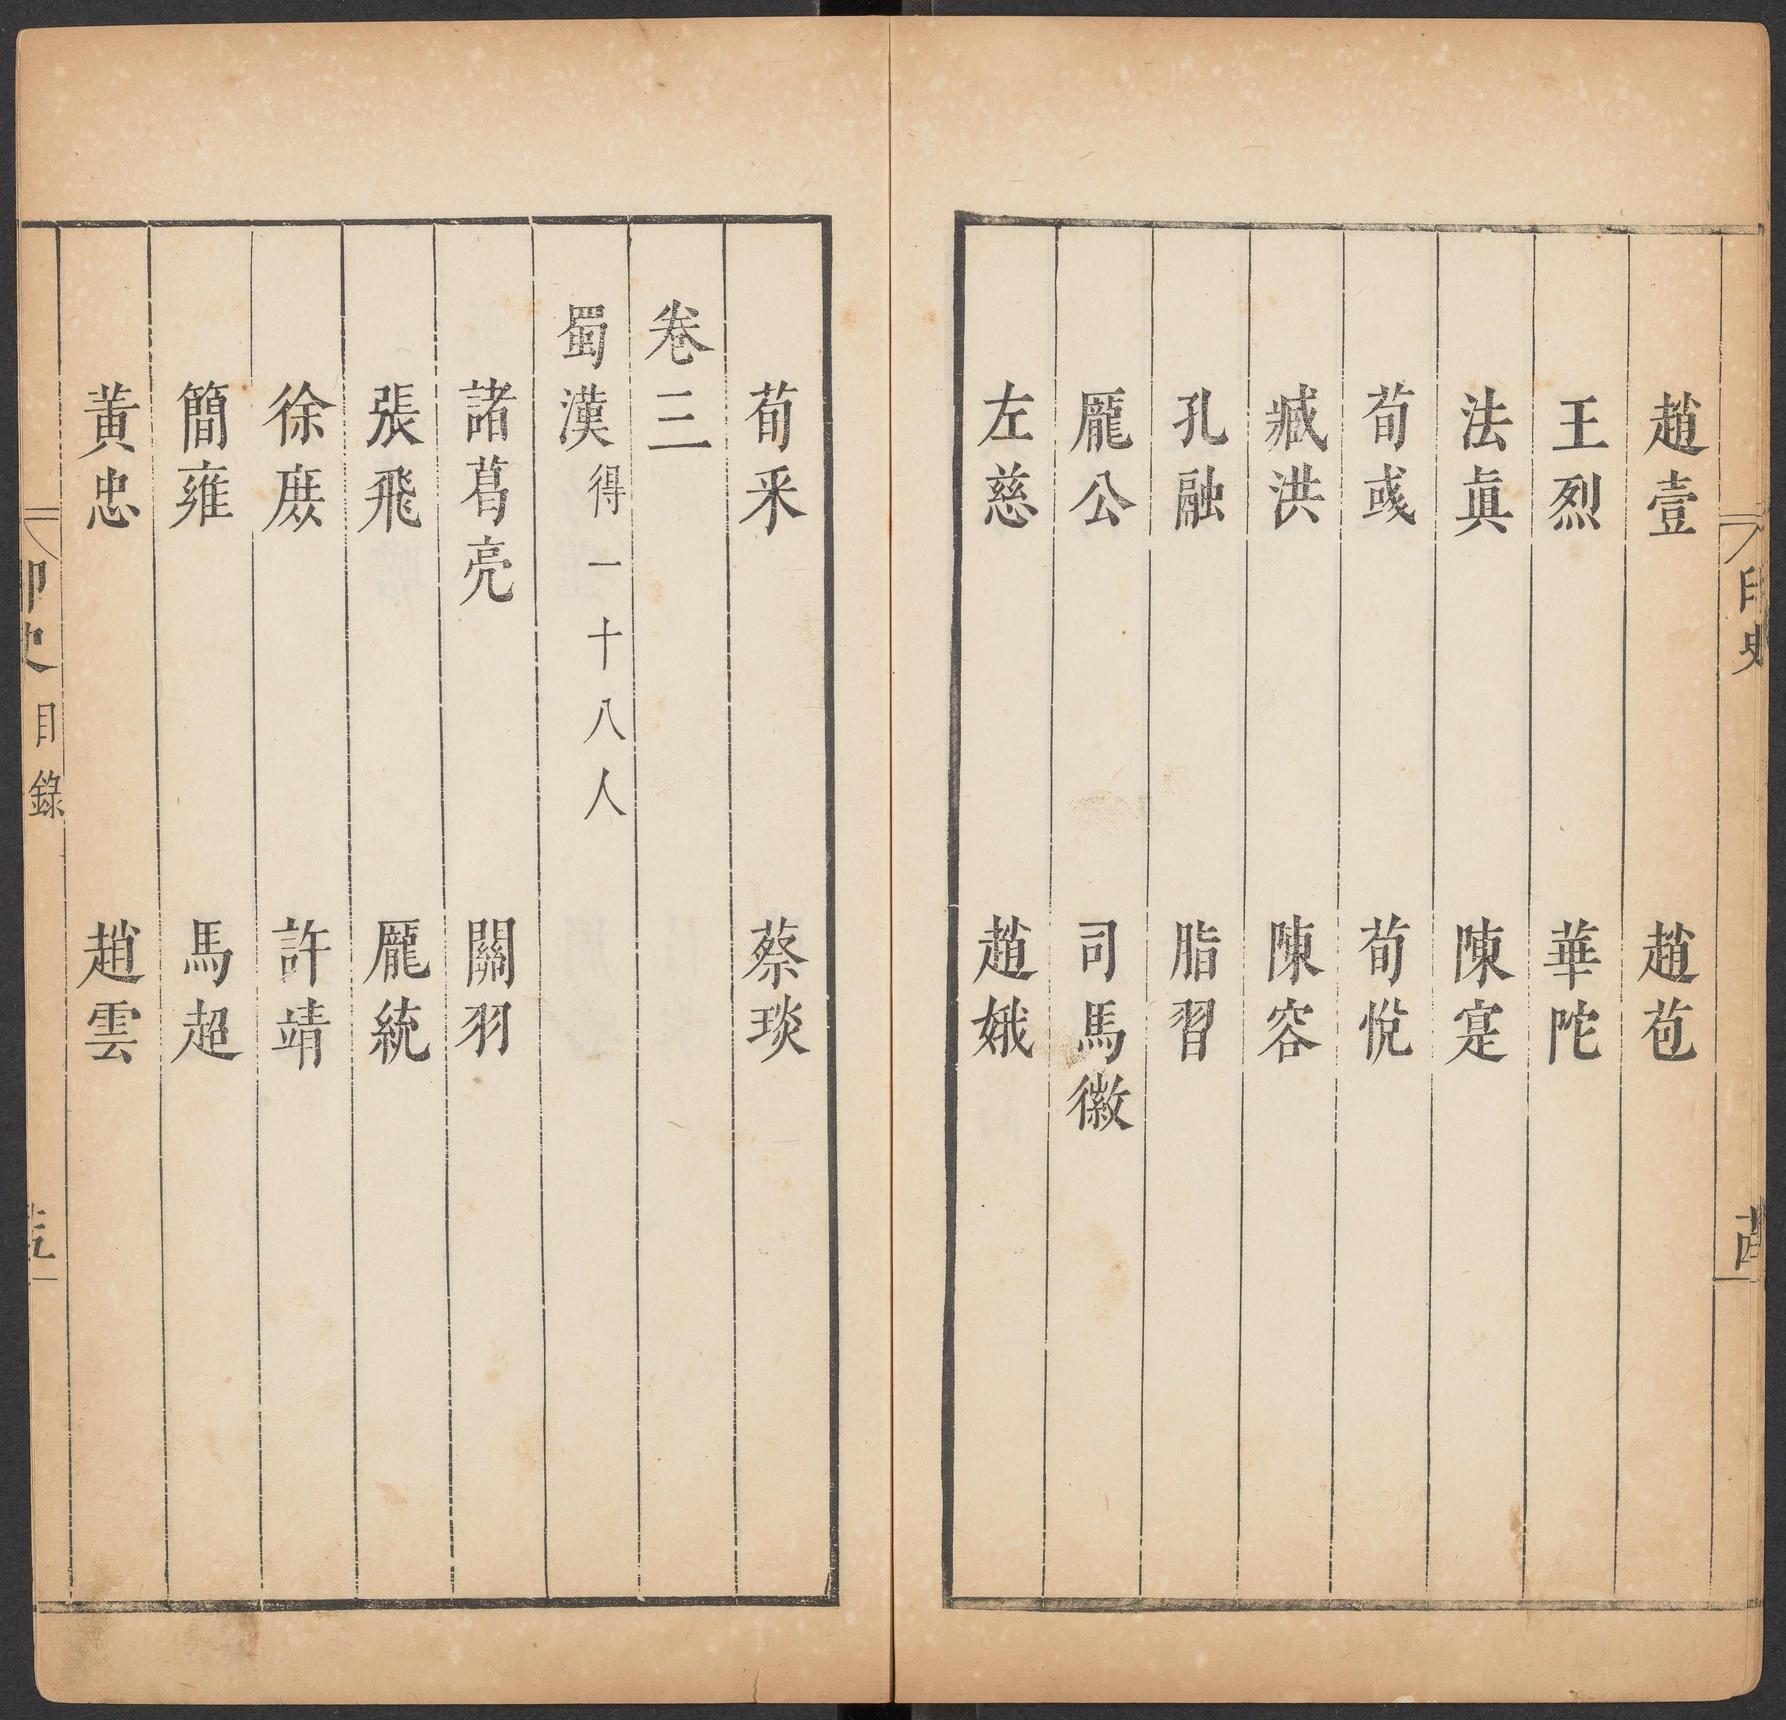 趙壹 趙苞
王烈 華陀
法眞 陳寔
荀彧 荀悅
臧洪 陳容
孔融 脂習
龐公 司馬徽
左慈 趙娥
印史
荀釆 蔡琰
卷三
蜀漢得一十八人
諸葛亮 關羽
張飛 龐統
徐庶 許靖
簡雍 馬超
黃忠 趙雲
印史 目錄